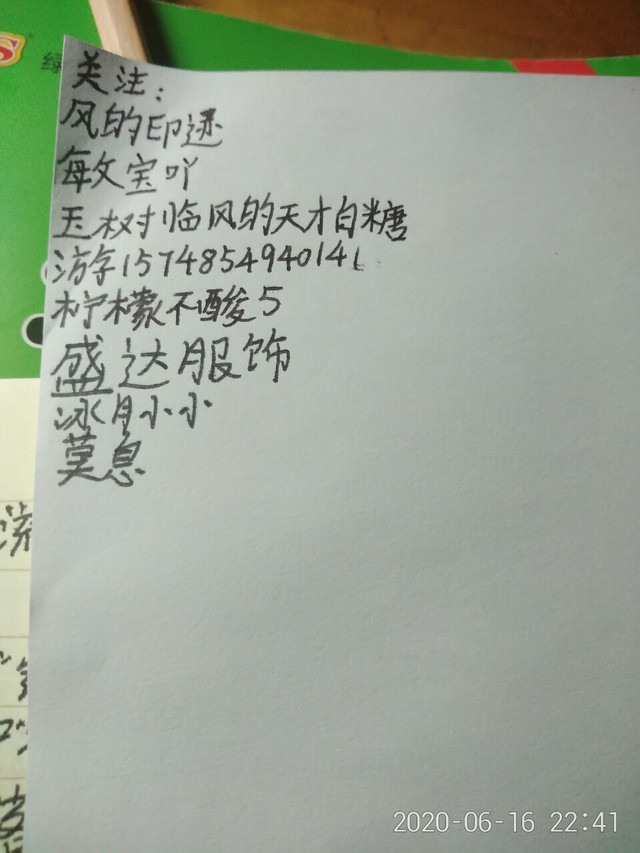 关注:
风的印迹
每文宝吖
玉树临风的天才白糖
游字1574854940141
柠檬不酸5
盛达服饰
冰月小小
莫息
2020-06-16 22:41